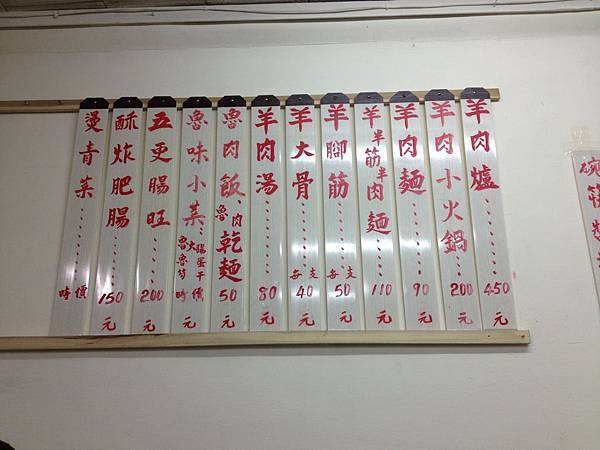 羊肉爐.........450元
羊肉小火鍋......200元
羊肉麵.........90元
羊半筋半肉麵...110元
羊腳筋......每支50元
羊大骨......每支40元
羊肉湯.........80元
魯肉飯、魯肉乾麵50元
魯味小菜：時價
五更腸旺......200元
酥炸肥腸......150元
燙青菜.........時價
碗筷